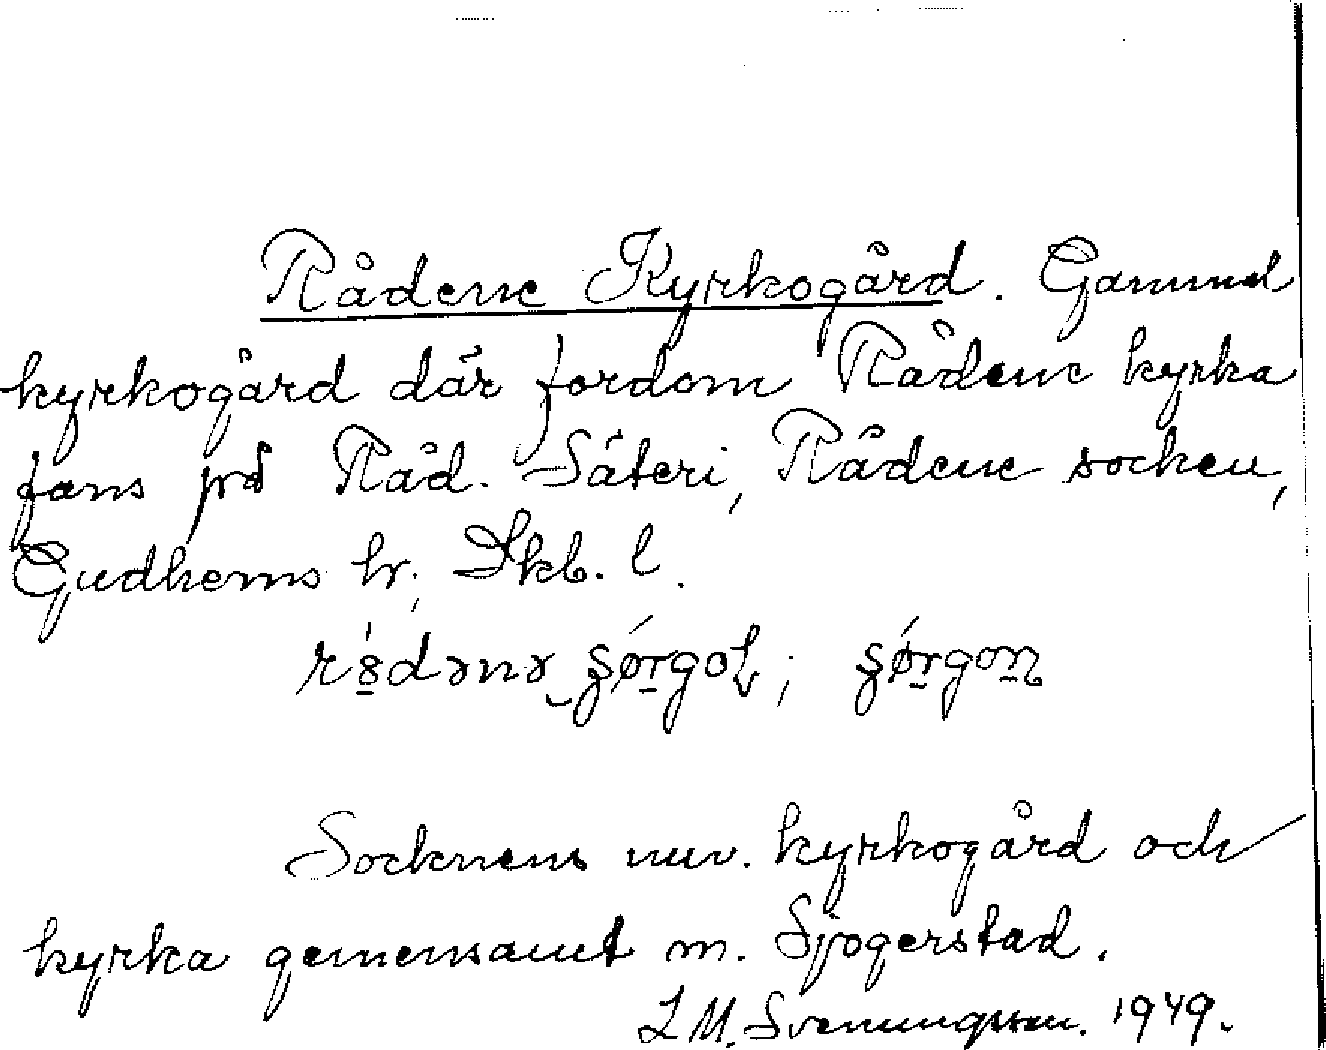 Rådene Kyrkogård. Gammal
kyrkogård där fordom Rådene kyrka
fans på Råd. Säteri, Rådene socken,
Gudhems hr, Skb. l.
Socknens nuv. kyrkogård och
kyrka gemensamt m. Sjogerstad.
L M. Svenungsson. 1949.